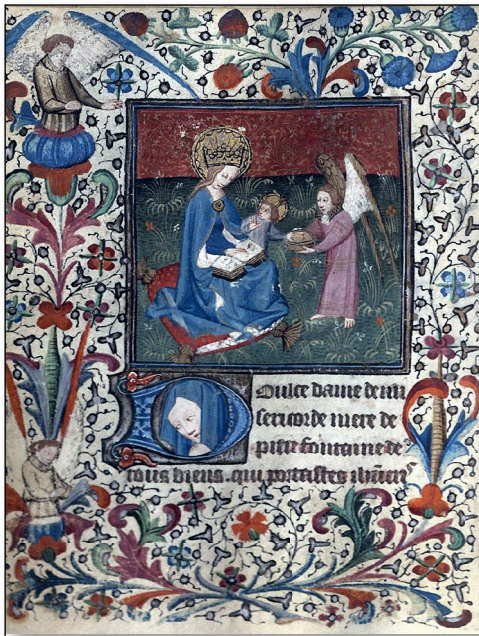 Doulce dame de mi
sericorde mere de
pitie fontainne de
tous biens. qui portastes